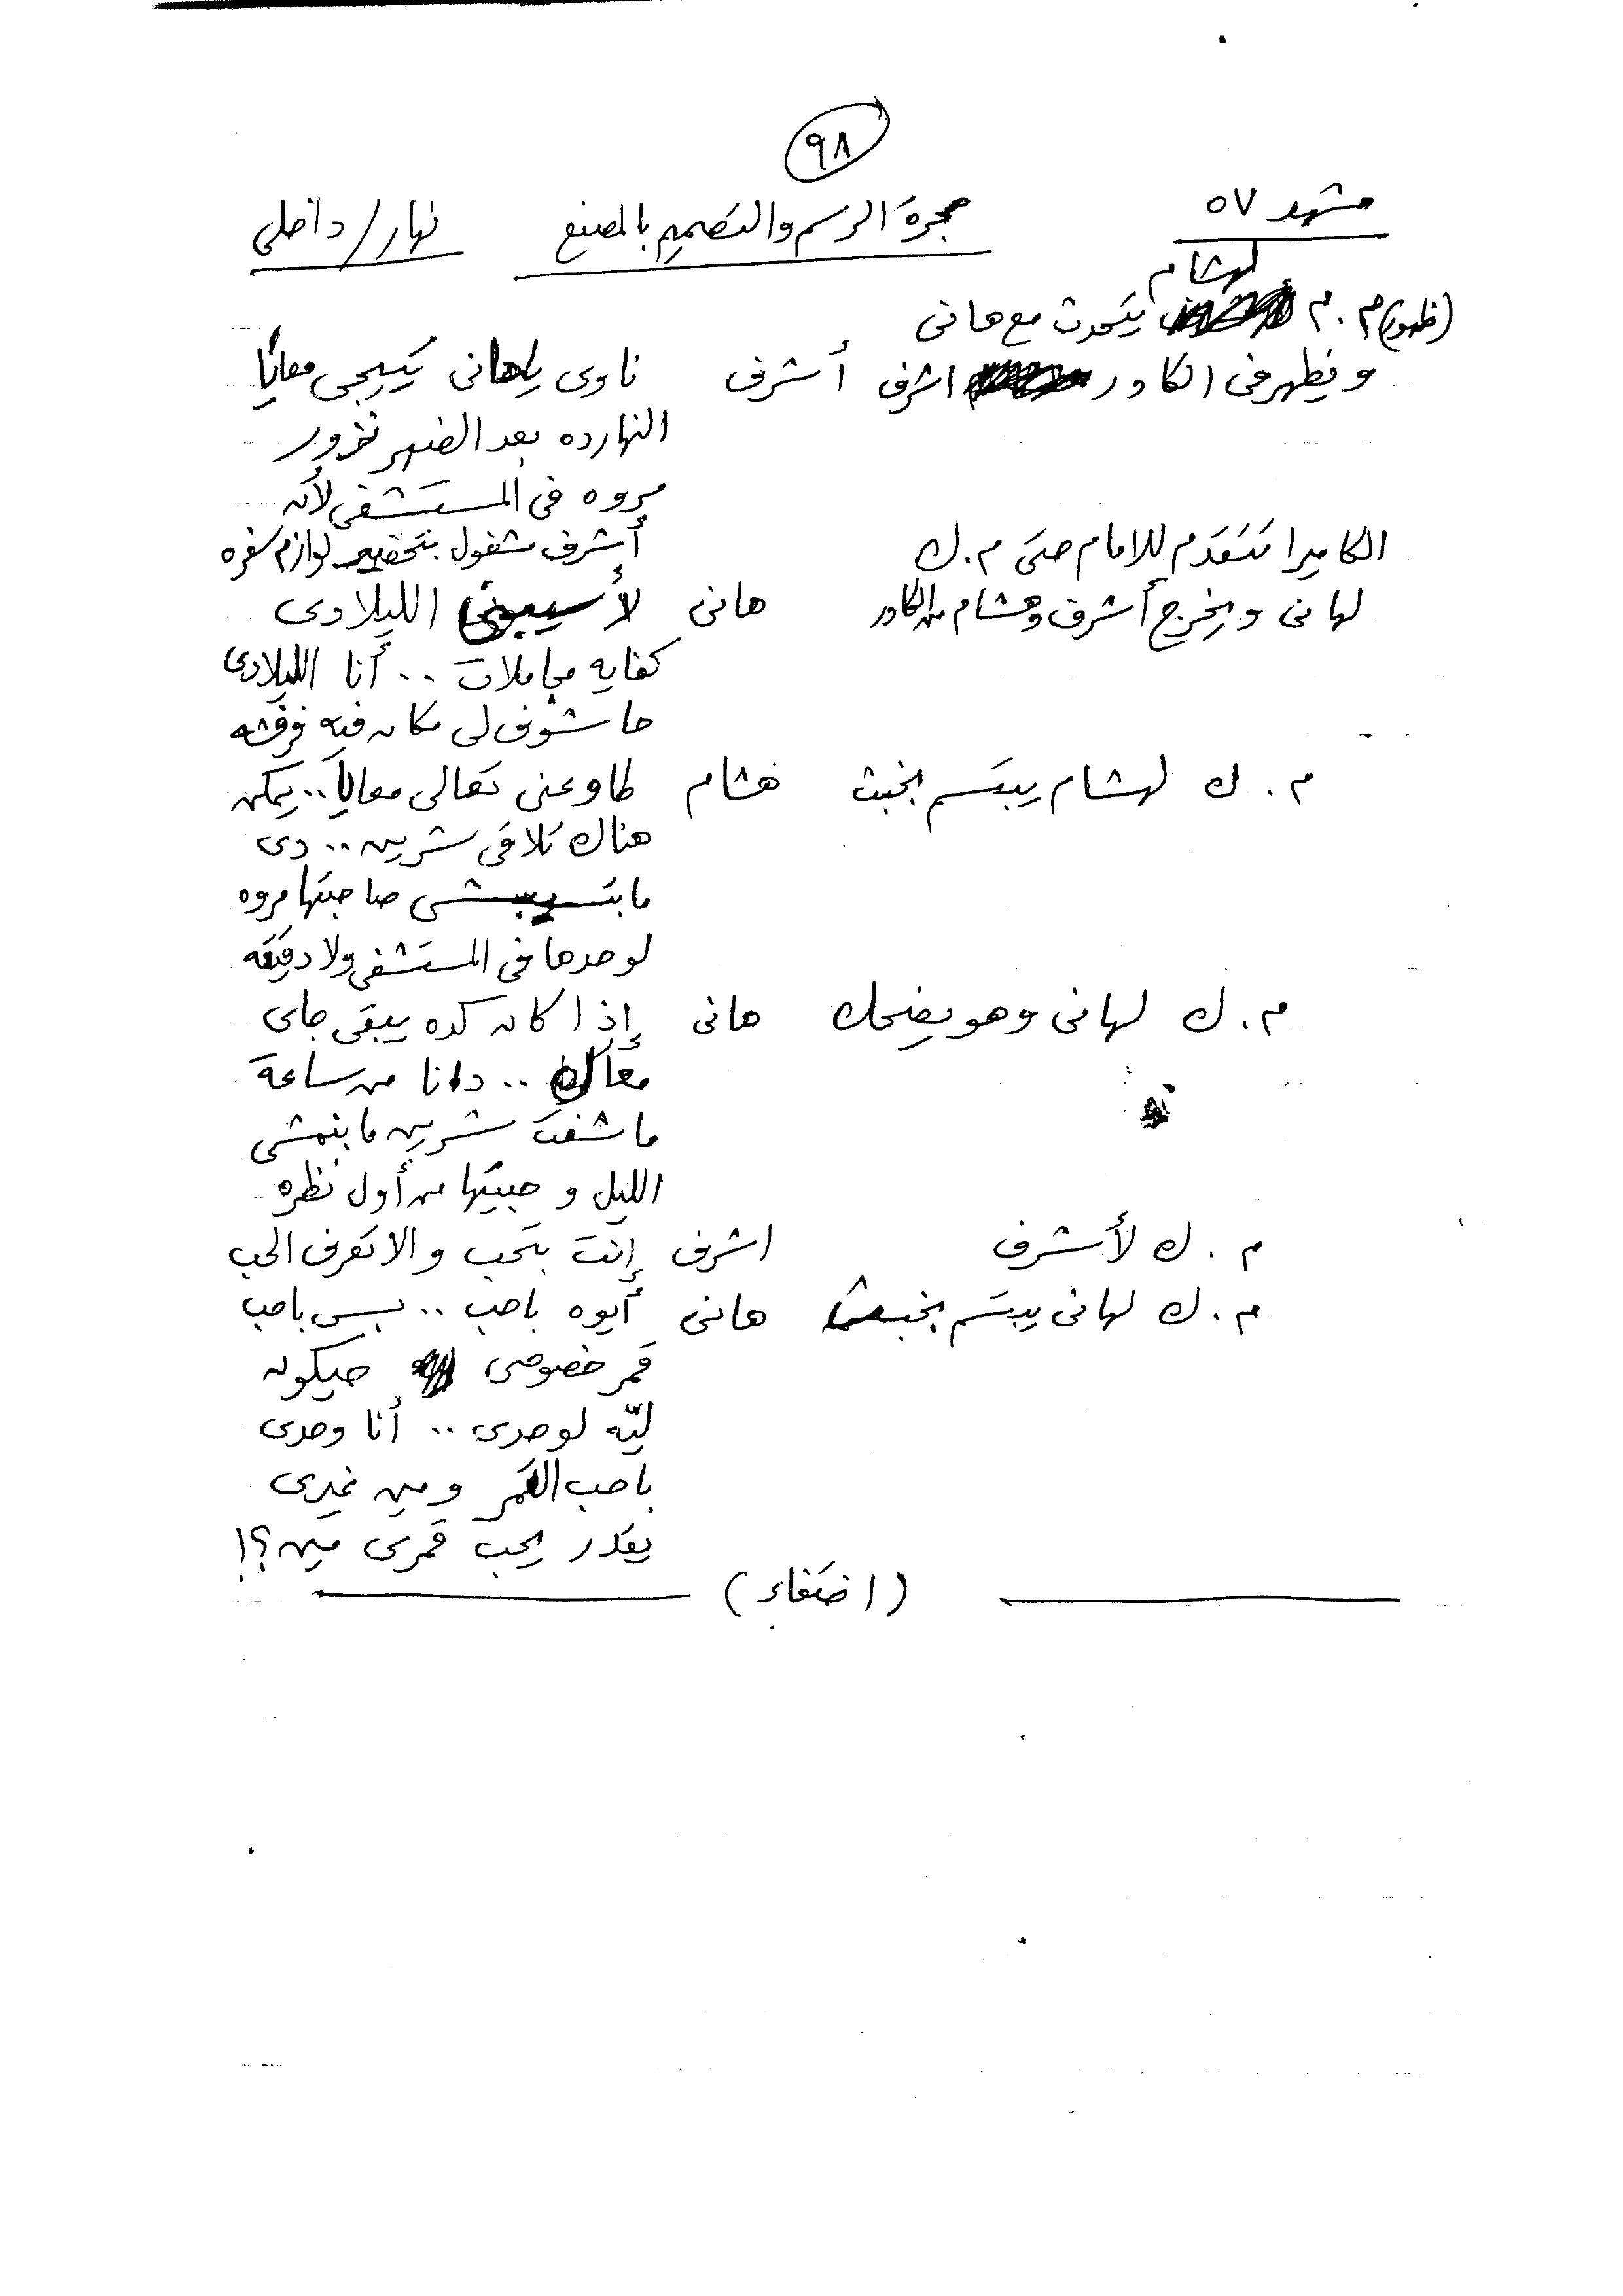 ٩٨
مشهد ٥٧ حجرة الرسم والتصميم بالمصنع نهار/داخلى
لهشام
(ظهور) م.م يتحدث مع هانى
ويظهر فى الكادر اشرف أشرف ناوى ياهانى تيجى معايا
النهارده بعد الضهر نزور
مروه فى المستشفى لأن
الكاميرا تتقدم للامام حتى م.ك أشرف مشغول بتحضير لوازم سفره
لهانى ويخرج أشرف وهشام من الكادر هانى لأ سيبونى الليلادى
كفايه مجاملات .. أنا الليلادى
حاشوف لى مكان فيه فرفشه
م.ك لهشام يبتسم بخبث هشام طاوعنى تعالى معايا .. يمكن
هناك تلاقى شرين .. دى
مابتسيبش صاحبتها مروه
لوحدها فى المستشفى ولا دقيقه
م.ك لهانى وهو يضحك هانى إذا كان كده يبقى جاى
معاك .. دانا من ساعة
ماشفت شرين مابنمشى
الليل وحبيتها من أول نظره
م.ك لأشرف اشرف إنت بتحب والا تعرف الحب
م.ك لهانى يبتسم بخبث هانى أيوه باحب .. بس باحب
قمر خصوصى حيكون
ليّه لوحدى .. أنا وحدى
باحب القمر ومين غيرى
يقدر يحب قمرى مين؟!
(اختفاء)